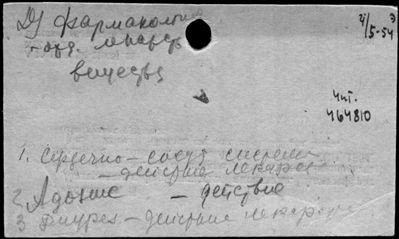 Д/ Фармакология
21/5-54 э
- отд. лекарств
веществ
Чит.
464810
1. Сердечно-сосуд система
- действие лекарств
2. Адонис - действие
3 Диурез - действие лекарств